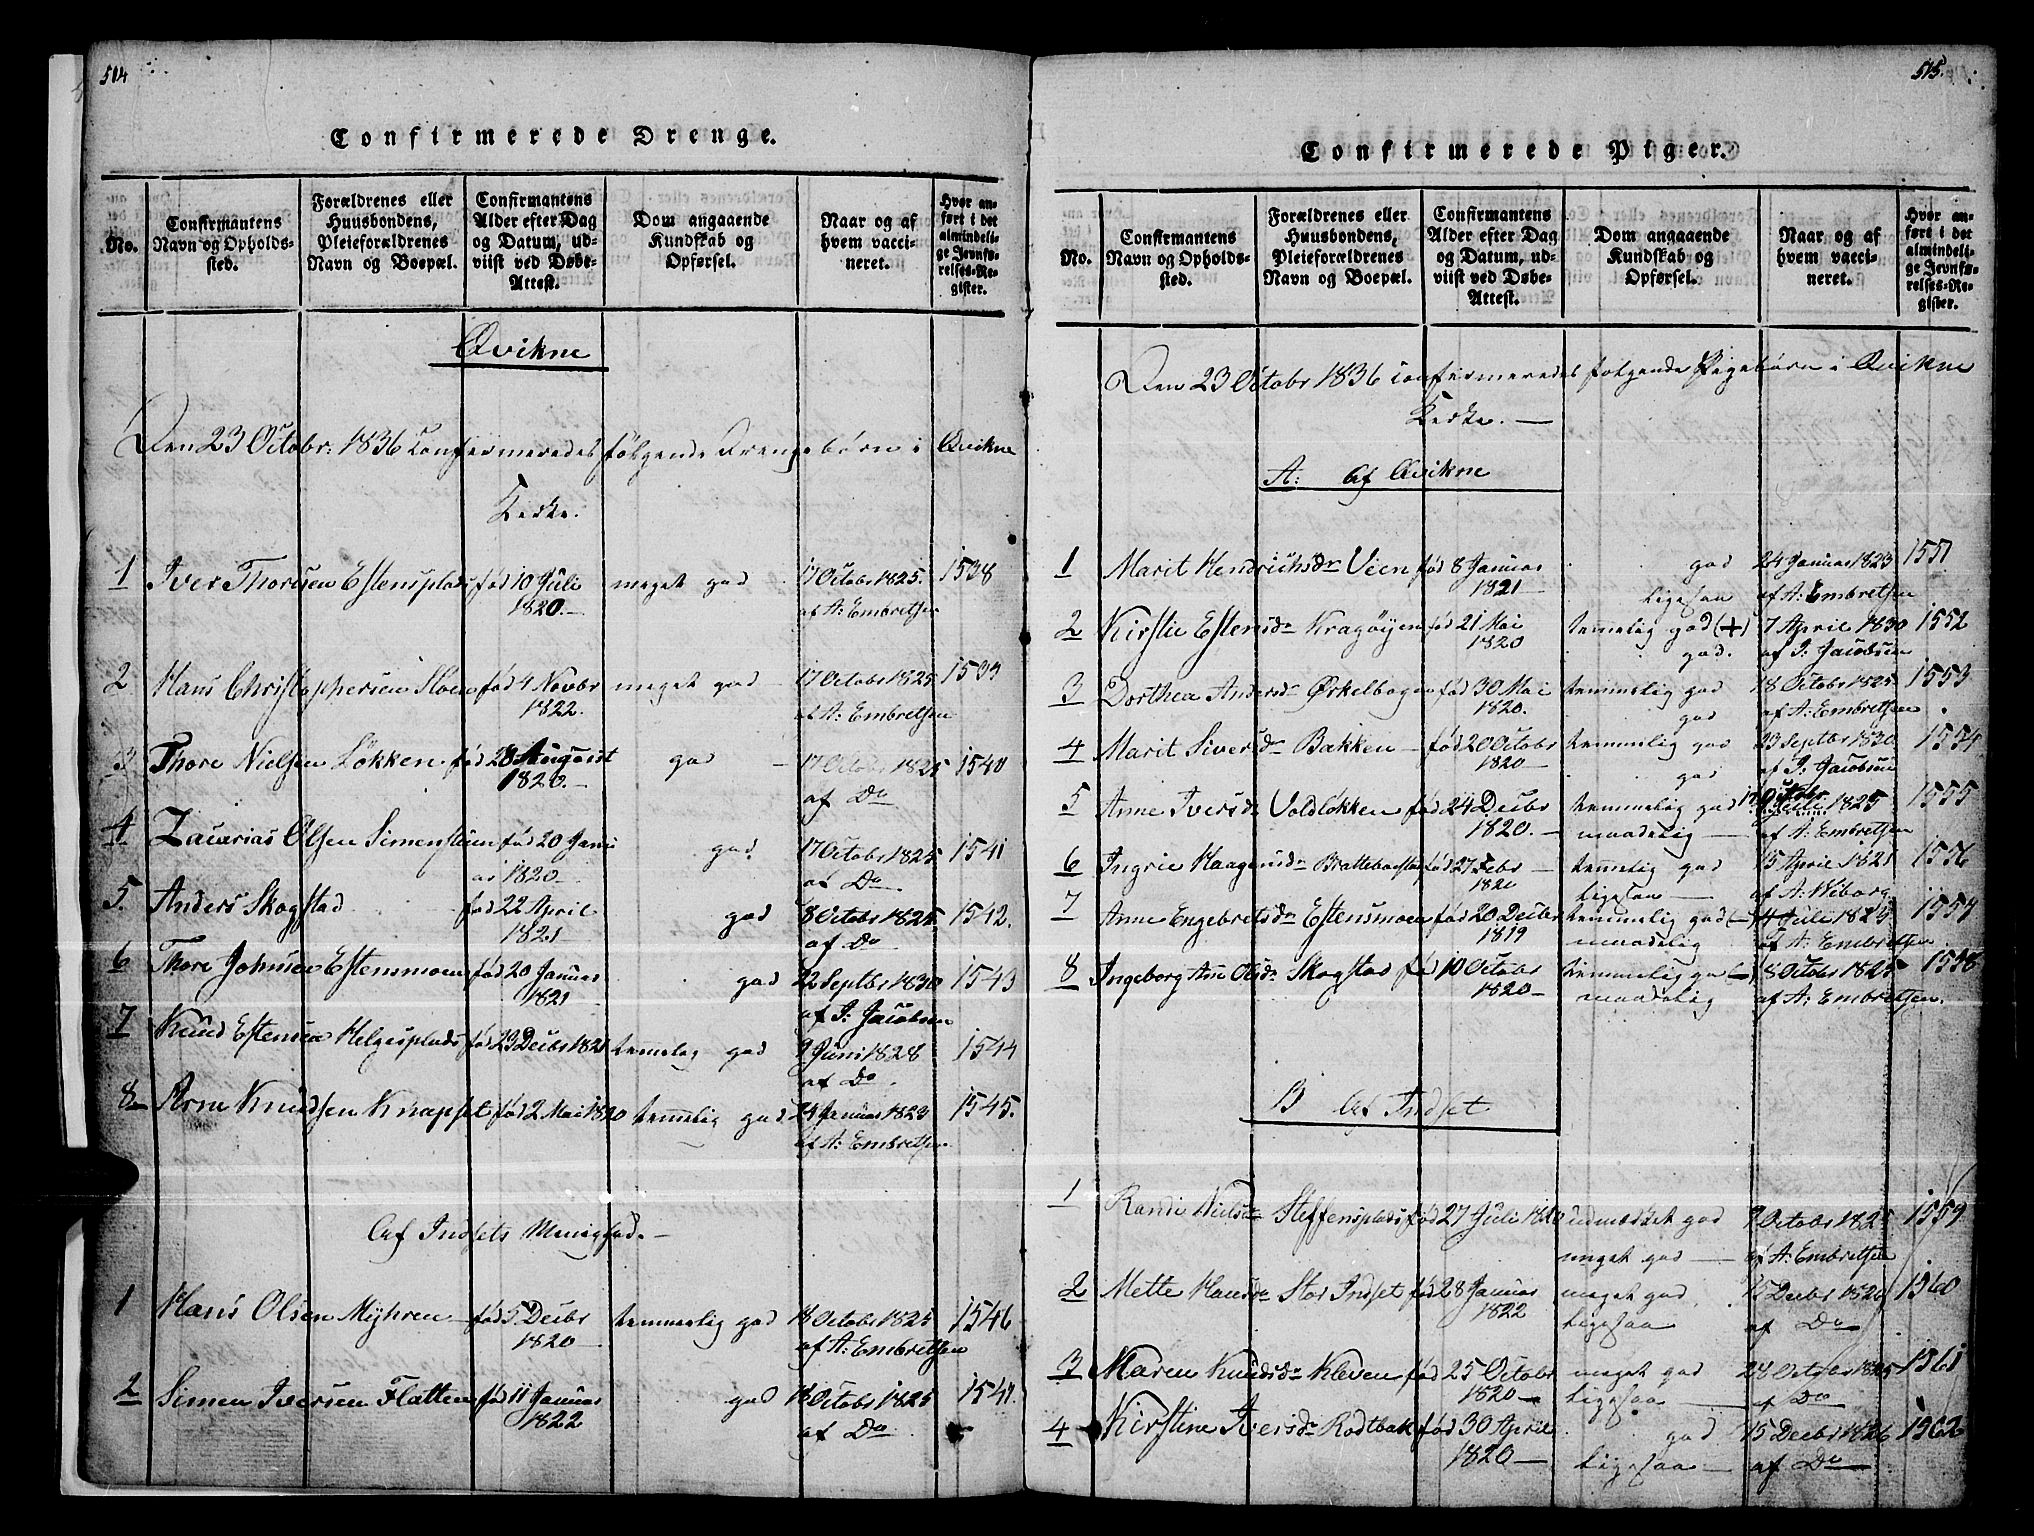 514
Confirmerede Drenge.
No.
Confirmantens Navn og Opholdssted.
Forældrenes eller Huusbondens, Pleieforældrenes Navn og Boepæl.
Confirmantens Alder efter Dag og Datum, udviist ved Døbe-Attest.
Dom angaaende Kundskab og Opførsel.
Naar og af hvem vaccineret.
Hvor anført i det almindelige Jevnførelses-Register.
Qvikne
Den 23 Octobr: 1836 Confirmeredes følgende Drengebørn i Qvikne
Kirke.
1 Iver Thoresen Estensplads fød 10 Juli meget god 17 Octobr 1825. 1538
1820.- af A: Embretsen
2 Hans Christoppersen Moen fød 4 Novbr meget god - 17 Octobr 1825 1539
1822. af A: Embretsen
3 Thore Nielsen Løkken fød 28 August god - 17 Octobr 1825 1540
1820.- af Do
4 Zacarias Olsen Simenstuen fød 20 Janu god 17 Octobr 1825 1541
ar 1820- af Do
5. Anders Skogstad fød 22 April god 8 Octobr 1825. 1542.
1821 af Do
6 Thore Johnsen Estensmoen fød 20 Januar god 22 Septbr 1830 1543
1821 af J: Jacobsen
7 Knud Estensen Helgesplads fød 23 Decbr 1821 temelig god 9 Juni 1828 1544
af Do
8 Arne Knudsen Knapset fød 2 Mai 1820 temmelig god 24 Januar 1823 1545.
af A: Embretsen
Af Indsets Menighed.-
1 Hans Olsen Myhren fød 5 Decbr temmerlig god 18 Octobr 1825 1546
1820 af A: Embretsen
2 Simen Iversen Flatten fød 11 Januar god 18 Octobr 1825 1547.
1822 af Do
515.
Confirmerede Piger.
No.
Confirmantens Navn og Opholdssted.
Forældrenes eller Huusbondens, Pleieforældrenes Navn og Boepæl.
Confirmantens Alder efter Dag og Datum, udviist ved Døbe-Attest.
Dom angaaende Kundskab og Opførsel.
Naar og af hvem vaccineret.
Hvor anført i det almindelige Jevnførelses-Register.
Den 23 Octobr 1836 Confirmeredes følgende Pigebørn i Qvikne
Kirke. -
A: Af Qvikne
1 Marit Hendrichsdr Vien fød 8 Januar god 24 Januar 1823 1551
1821 ligesaa af A: Embretsen
2 Kirstie Estensdr Kragøyen fød 21 Mai temelig god (+) 7 April 1830 1552
1820 god. af J: Jacobsen
3 Dorthea Andersdr Ørkelbogen fød 30 Mai temmelig god 18 Octobr 1825 1553
1820. god af A: Embretsen
4 Marit Siversdr Bakken - fød 20 Octobr temmelig god 23 Septbr 1830 1554
1820 - god af J: Jacobsen
5 Anne Iversdr Voldløkken fød 24 Decbr temmelig god 1825 1555
1820. - maadelig - af A: Embretsen
6 Ingrie Haagensdr fød 27 Febr temelig god 15 April 1821 1556
1820 ligesaa - af A: Wiborg
7 Anne Engebretsdr Estensmoen fød 20 Decbr temmelig god (-) 4 Juli 1825 1557
1819 maadelig af A: Embretsen
8 Ingeborg Ane Olsdr Skogstad fød 10 Octobr temmelig god (-) 8 Octobr 1825 1558
1820 - maadelig af A: Embretsen.
B Af Indset
1 Randi Nielsdr Steffensplads fød 27 Juli 1820 udmærket god 7 Octobr 1825 1559
meget god - af A: Embretsen
2 Mette Hansdr Stor Indset fød 28 Januar meget god 15 Decbr 1826 1560
1822 ligesaa af Do
3 Maren Knudsdr Kleven fød 25 Octobr meget god 28 Octobr 1825 1561
1820 - ligesaa - af Do
4 Kirstine Iversdr Rodtbak fød 30 April god 15 Decbr 1826 1562
1820 - ligesaa - af Do